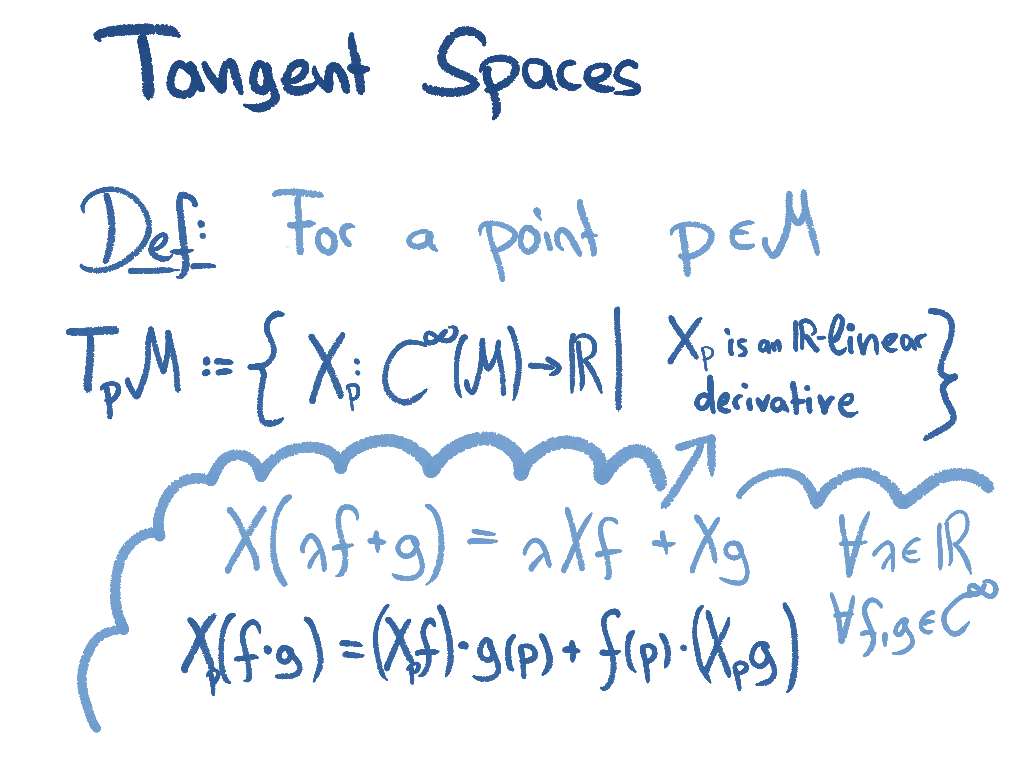 Tangent Spaces
Def: For a point p ∈ M
TₚM := { Xₚ: C^∞(M) → ℝ | Xₚ is an ℝ-linear
derivative }
X(λf+g) = λXf + Xg ∀λ∈ℝ
∀f,g∈C^∞
Xₚ(f·g) = (Xₚf)·g(p) + f(p)·(Xₚg)